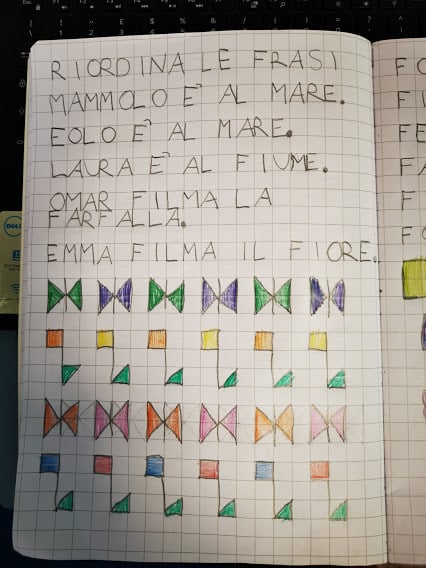 RIORDINA LE FRASI
MAMMOLO È AL MARE.
EOLO È AL MARE.
LAURA È AL FIUME.
OMAR FILMA LA
FARFALLA.
EMMA FILMA IL FIORE.
FO
FI
FE
FA
F
FO
DELL